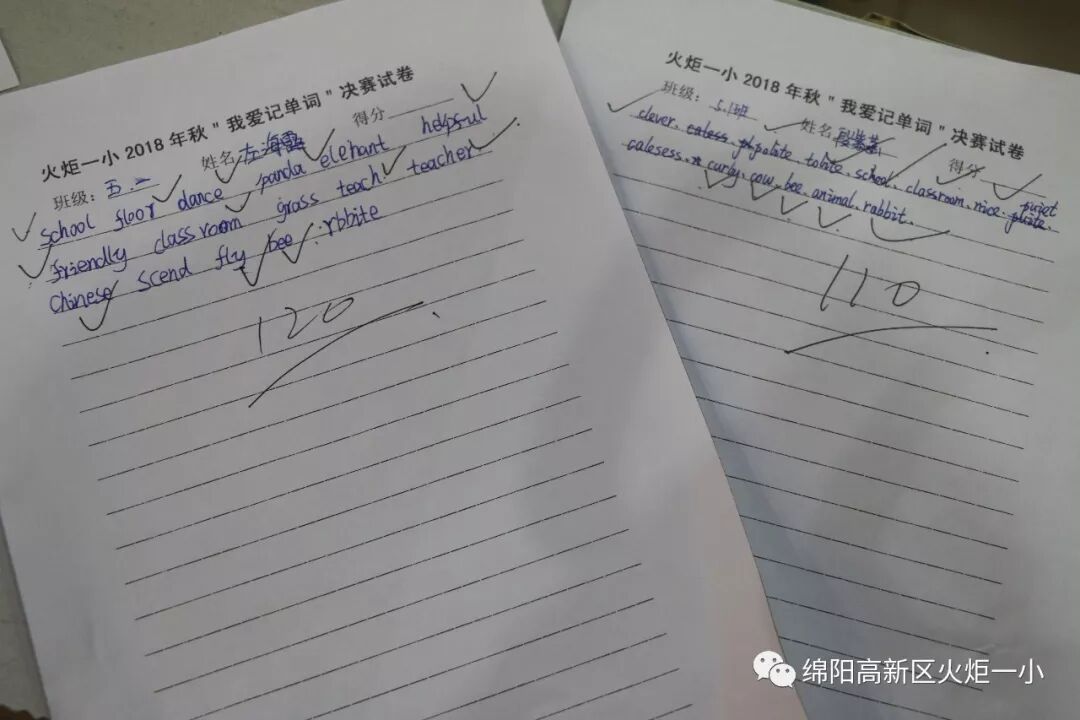 火炬一小 2018 年秋 " 我爱记单词 " 决赛试卷
班级: 五.二 姓名 左海霞 得分
school floor dance panda elehant helpsul
friendly classroom grass teach teacher
Chinese scend fly bee rbbite
120
火炬一小 2018 年秋 " 我爱记单词 " 决赛试卷
班级: 5.1班 姓名 得分
clever. caless. polite. tolite. school. classroom. nice. plite. pujet
calesess. curly. cow. bee. animal. rabbit.
110
绵阳高新区火炬一小